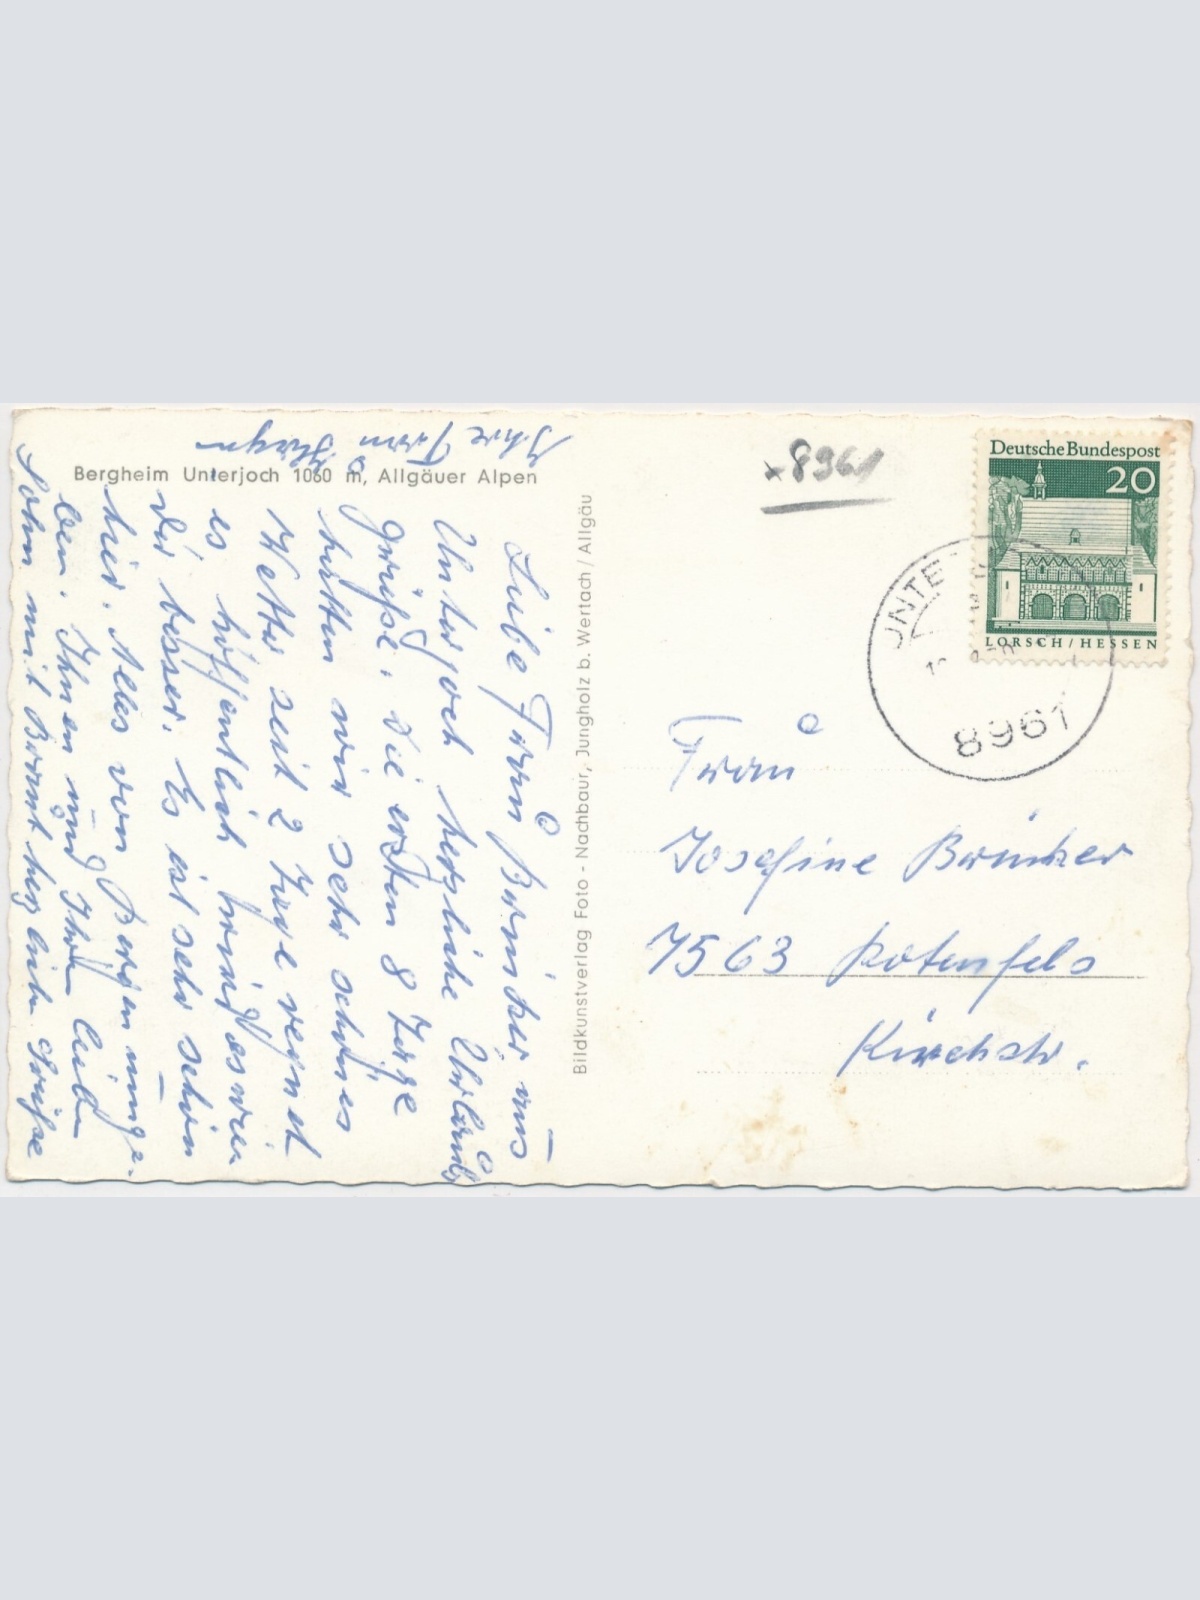 Bergheim Unterjoch 1060 m, Allgäuer Alpen
Liebe Frau aus
Unterjoch herzliche Urlaubs
grüße. Die ersten 8 Tage
hatten wir sehr schönes
Wetter seit 2 Tage regnet
es hoffentlich es wie
der besser. Es ist sehr schön
hier. Alles von Bergen umge-
ben. Ihnen und Ihrem lieben
Sohn mit Braut herzliche Grüße
Ihre Frau
Bildkunstverlag Foto - Nachbaur, Jungholz b. Wertach / Allgäu
*8961
Deutsche Bundespost
20
LORSCH / HESSEN
UNTE
8961
Frau
Josefine Brünker
7563 Rotenfels
Kirchstr.